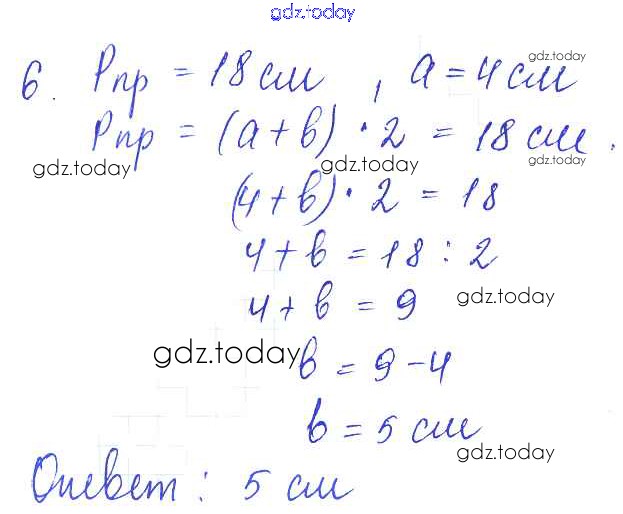 gdz.today
6. Pпр = 18 см, a = 4 см gdz.today
Pпр = (a + b) · 2 = 18 см.
gdz.today gdz.today gdz.today
(4 + b) · 2 = 18
4 + b = 18 : 2
4 + b = 9 gdz.today
gdz.today b = 9 - 4
b = 5 см
gdz.today
Ответ: 5 см